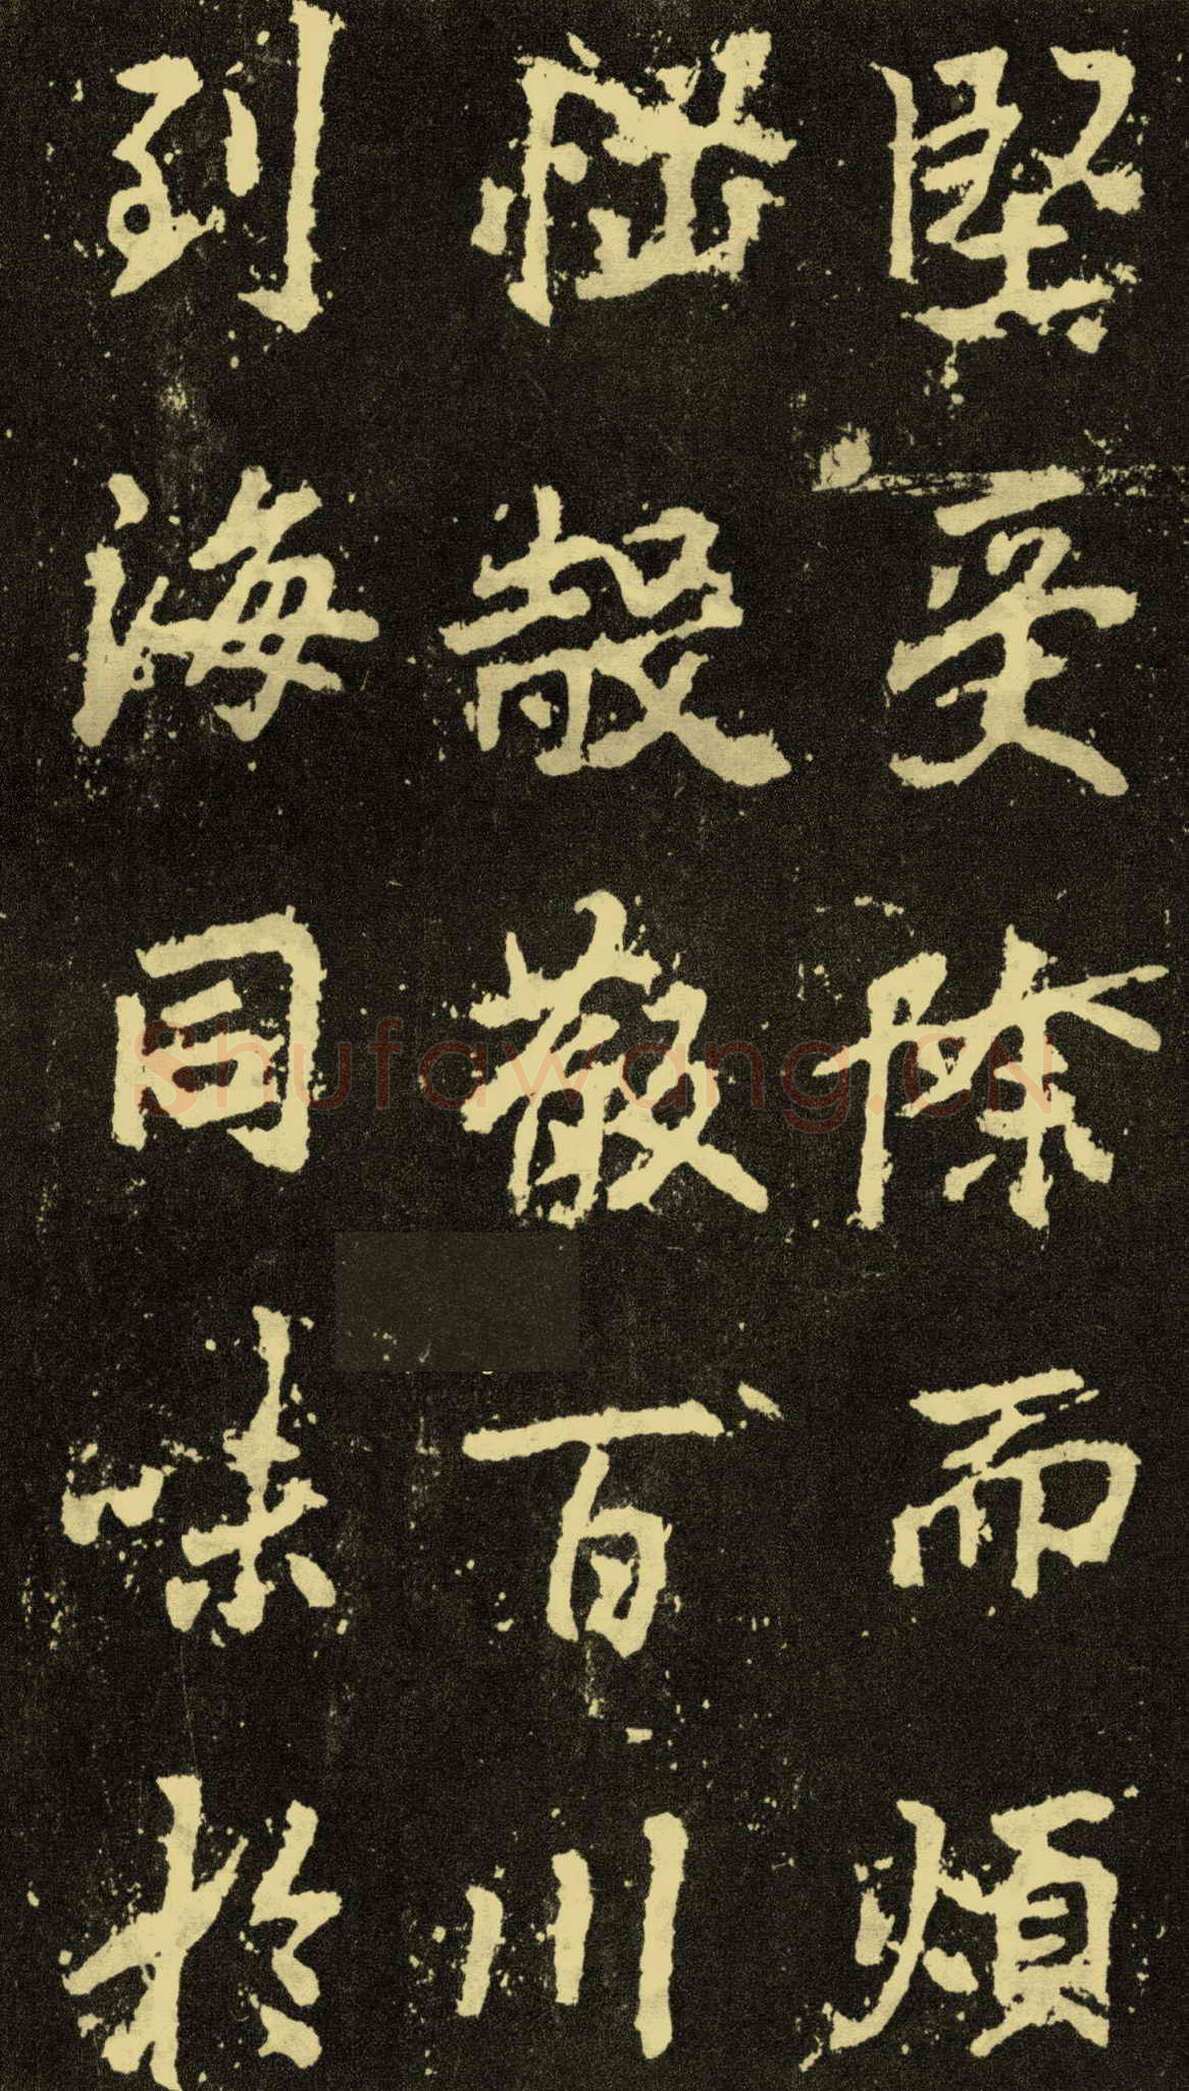 堅受除而煩
惱殼散百川
到海同味於
Shufawang.CN